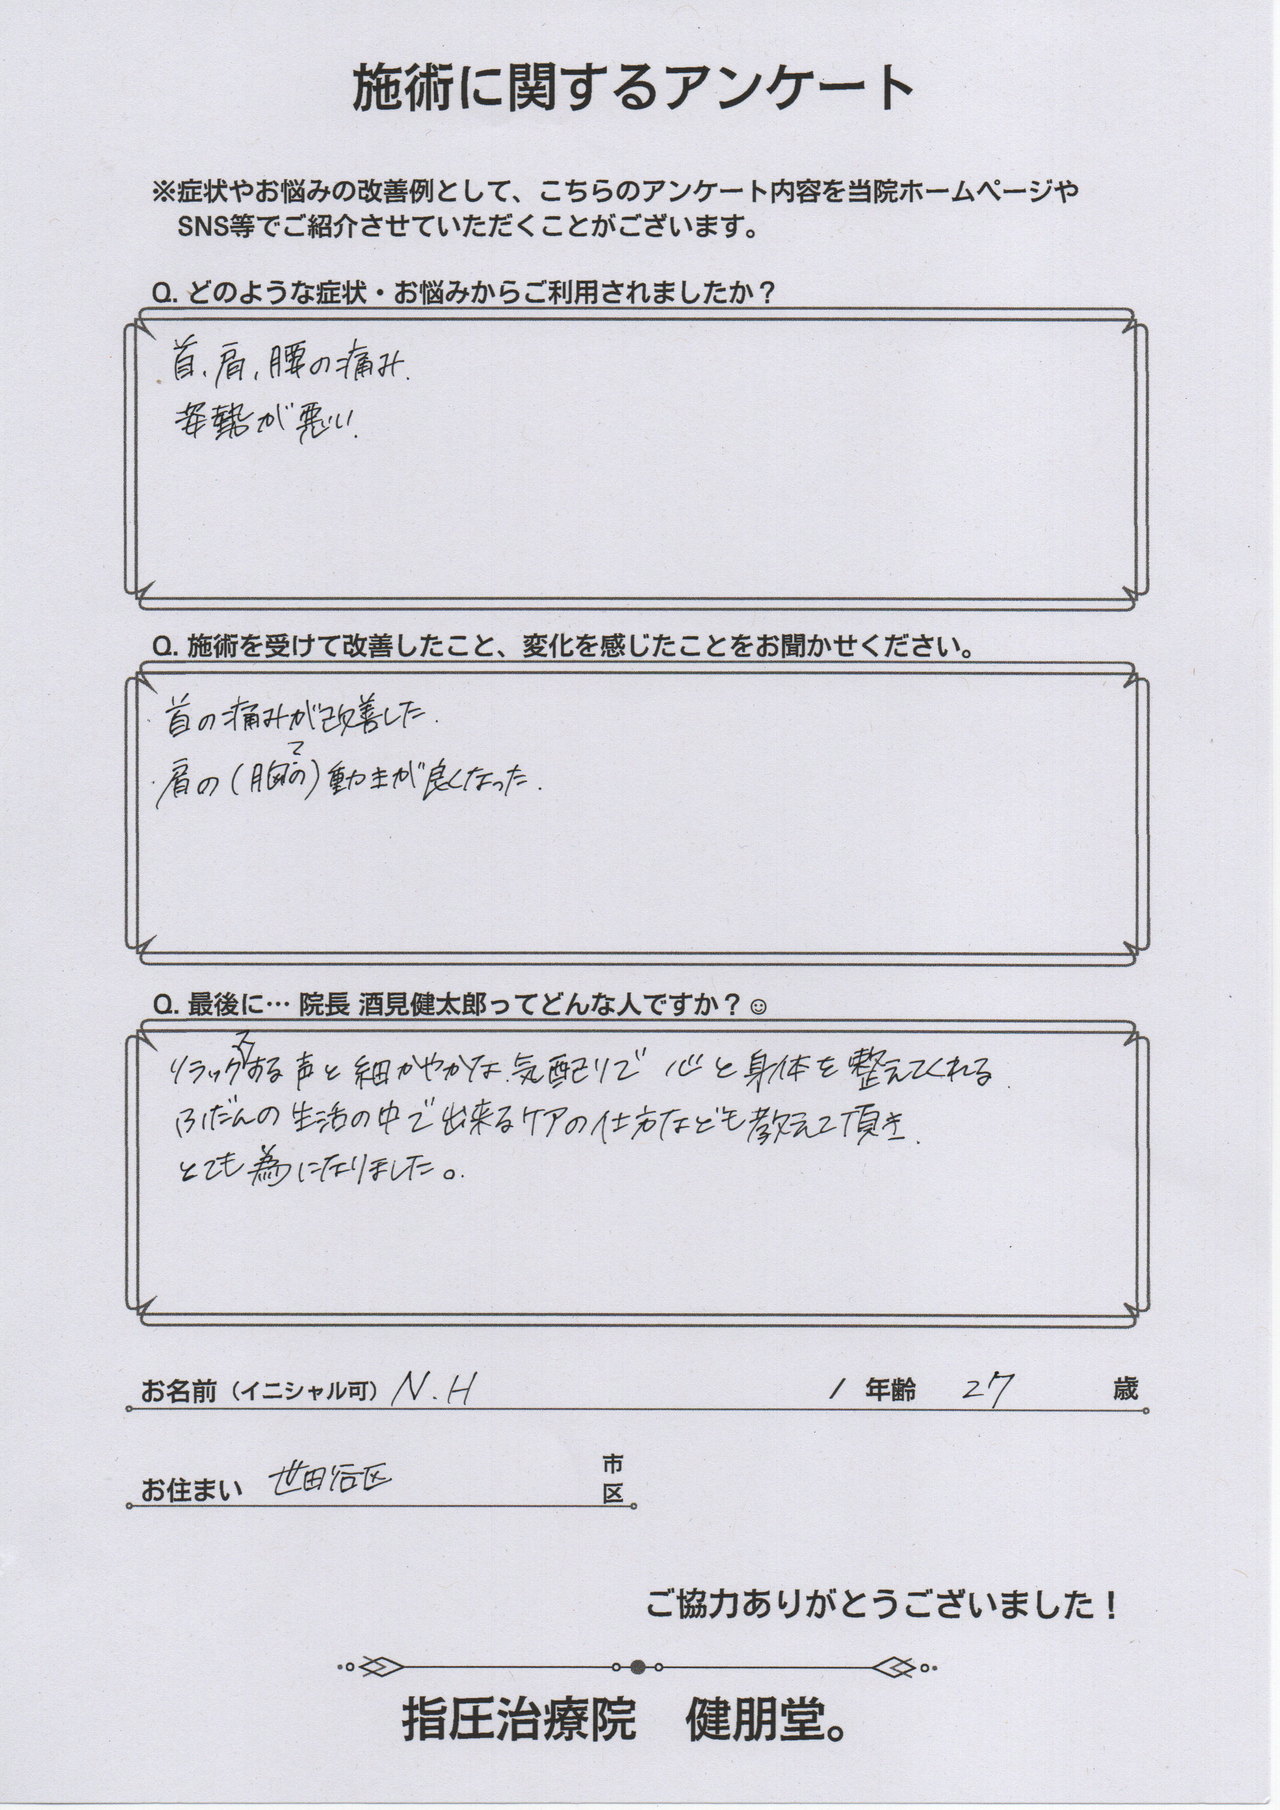 施術に関するアンケート
※症状やお悩みの改善例として、こちらのアンケート内容を当院ホームページや
SNS等でご紹介させていただくことがございます。
Q. どのような症状・お悩みからご利用されましたか？
首、肩、腰の痛み.
姿勢が悪い.
Q. 施術を受けて改善したこと、変化を感じたことをお聞かせください。
・首の痛みが改善した.
・肩の(胸この)動きが良くなった.
Q. 最後に… 院長 酒見健太郎ってどんな人ですか？☺
リラックスする声と細かやかな気配りで 心と身体を整えてくれる.
ふだんの生活の中で出来るケアの仕方なども教えて頂き.
とても為になりました。
お名前（イニシャル可） N.H / 年齢 27 歳
お住まい 世田谷区 市区
ご協力ありがとうございました！
指圧治療院 健朋堂。